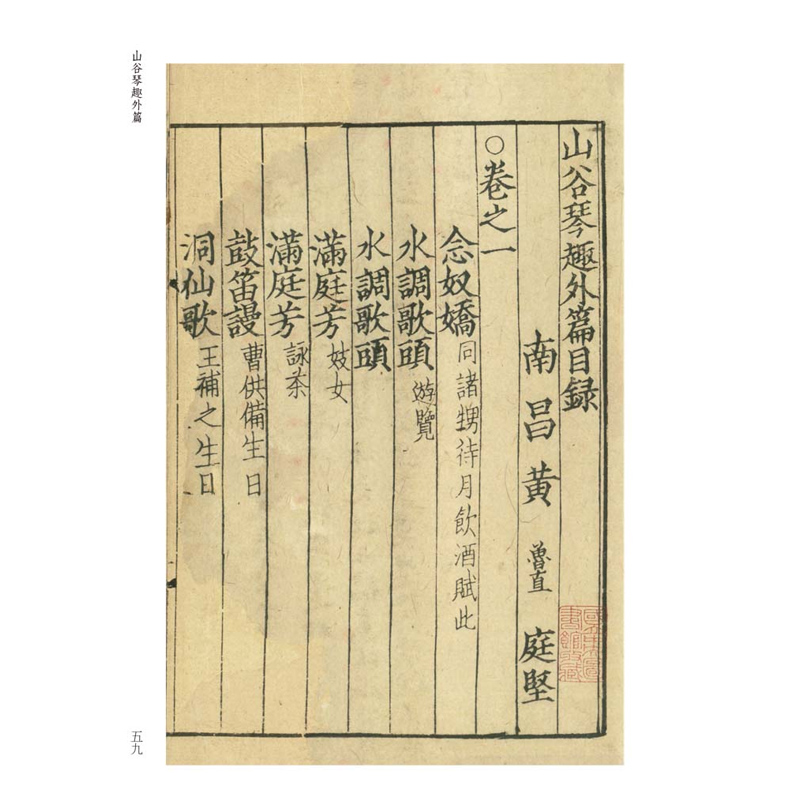 山谷琴趣外篇
山谷琴趣外篇目録
南昌黄 魯直 庭堅
○卷之一
念奴嬌 同諸甥待月飲酒賦此
水調歌頭 遊覽
水調歌頭
滿庭芳 妓女
滿庭芳 詠茶
鼓笛謾 曹供備生日
洞仙歌 王補之生日
五九